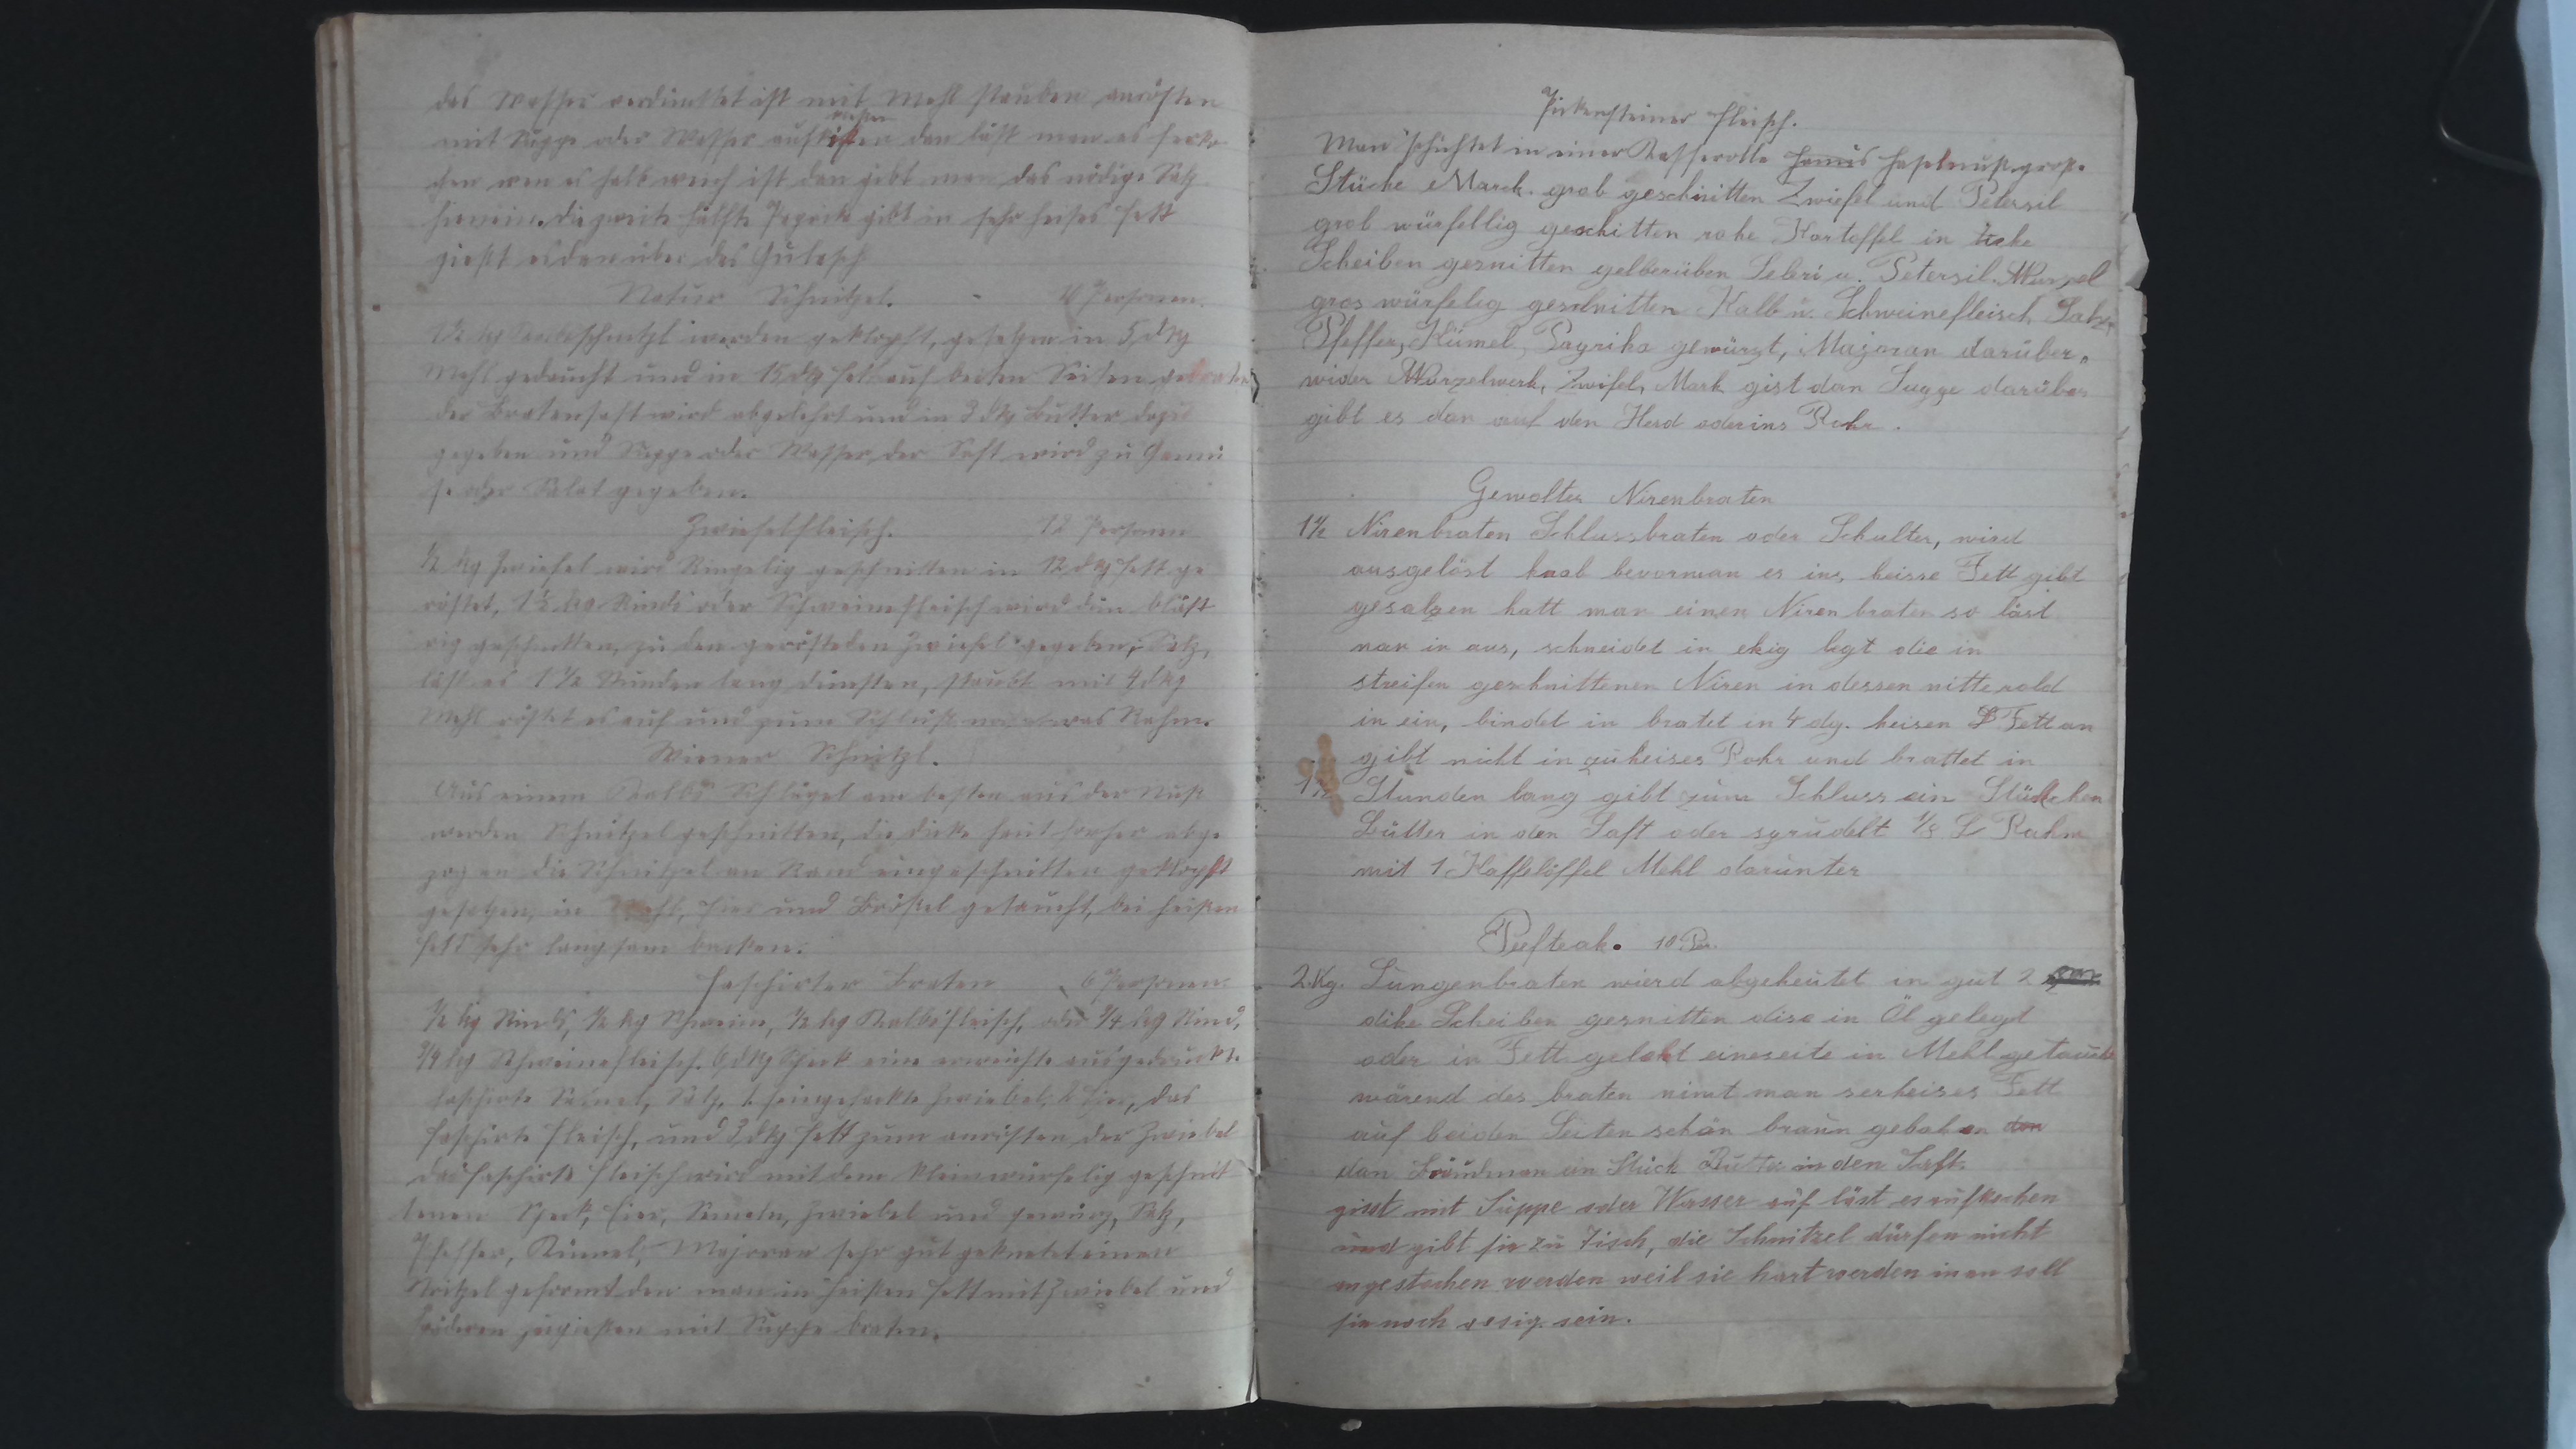 das Wasser verdünstet ist mit Mehl stauben anrösten
mit Suppe oder Wasser aufgießen dan läßt man es ferko-
chen wen es halb weich ist dan gibt man das nödige Salz
hinein. die zweite hälfte Paprika gibt in sehr heises Fett
gießt es darüber das Gulasch
Natur Schnitzel. - 10 Personen.
1½ kg schnitzl werden geklopft, gesalzen in 5 dkg
Mehl getaucht und in 15 dkg Fett auf beiden Seiten gebraten
der Bratensaft wird abgelehrt und in 3 dkg Butter dazu
gegeben und Suppe oder Wasser, der Saft wird zu Gemü
se oder Salat gegeben.
Zwiefelfleisch. 12 Personen
½ kg Zwiefel wird Ringelig geschnitten in 12 dkg Fett ge
röstet, 1½ kg Rinds oder Schweinefleisch wird dün blätt
rig geschnitten, zu den gerösteten Zwiefel gegeben, Salz,
läßt es 1½ Stunden lang dünsten, staubt mit 4 dkg
Mehl röstet es auf und zum Schluß noch etwas Rahm.
Wiener Schnitzl.
Aus einem Kalbs Schlägel am besten aus der Nuß
werden Schnitzel geschnitten, die dicke Haut forher abge
zogen die Schnitzel am Rand eingeschnitten geklopft
gesalzen, in Mehl, Eier und Brößel getaucht, bei heißen
Fett sehr langsam backen.
Faschirter Braten 6 Personen.
½ kg Rinds, ½ kg Schweine, ½ kg Kalbsfleisch, oder ¾ kg Rind,
¾ kg Schweinefleisch. 6 dkg Speck eine erweichte ausgedrückte
faschirte Semel, Salz, 1 feingehackte Zwiebel, 2 Eier, das
faschirte Fleisch, und 3 dkg Fett zum anrösten der Zwiebel
das faschirte Fleisch wird mit dem kleinwürfelig geschnit
tenen Speck, Eier, Semeln, Zwiebel und gewürz, Salz,
Pfeffer, Kümel, Majoran sehr gut geknetet einen
Stritzel geformt den man in heißen Fett mit Zwiebel und
öderen zugießen mit Suppe braten.
Pickensteiner Fleisch.
Man schichtet in einer Kasserolle haselnußgroße
Stücke Marck. grob geschnitten Zwiefel und Petersil
grob würfellig geschitten rohe Kartoffel in ticke
Scheiben gesnitten gelberüben Seleri u. Petersil. Wurzel
gros würfelig geschnitten Kalb u. Schweinefleisch Salz,
Pfeffer, Kümel, Paprika gewürzt, Majoran darüber,
wider Wurzelwerk, Zwifel, Mark gist dan Suppe darüber
gibt es dan auf den Herd oder ins Rohr.
Gewolter Nirenbraten
1½ Nirenbraten Schlussbraten oder Schulter, wird
ausgelöst knab bevorman es ins heisse Fett gibt
gesalzen hatt man einen Nirenbraten so läst
man in aus, schneidet in ekig legt die in
streifen geschnittenen Niren in dessen mitte rold
in ein, bindet in bratet in 4 dg. heisen Fett an
gibt nicht in zu heises Rohr und brattet in
1½ Stunden lang gibt zum Schluss ein Stükchen
Butter in den Saft oder sprudelt ⅛ L Rahm
mit 1 Kaffelöffel Mehl darunter
Pifteak. 10 Per.
2.Kg. Lungenbraten wierd abgeheutet in gut 2
dike Scheiben gesnitten dise in Öl gelegt
oder in Fett gelekt eineseite in Mehl getaucht
wärend des braten nimt man serheises Fett
auf beiden Seiten schön braun gebaken
dan man ein Stück Butter in den Saft
gisst mit Suppe oder Wasser auf läst es aufkochen
und gibt sie zu Tisch, die Schnitzel dürfen nicht
angestochen werden weil sie hart werden inen soll
sie noch resig sein.